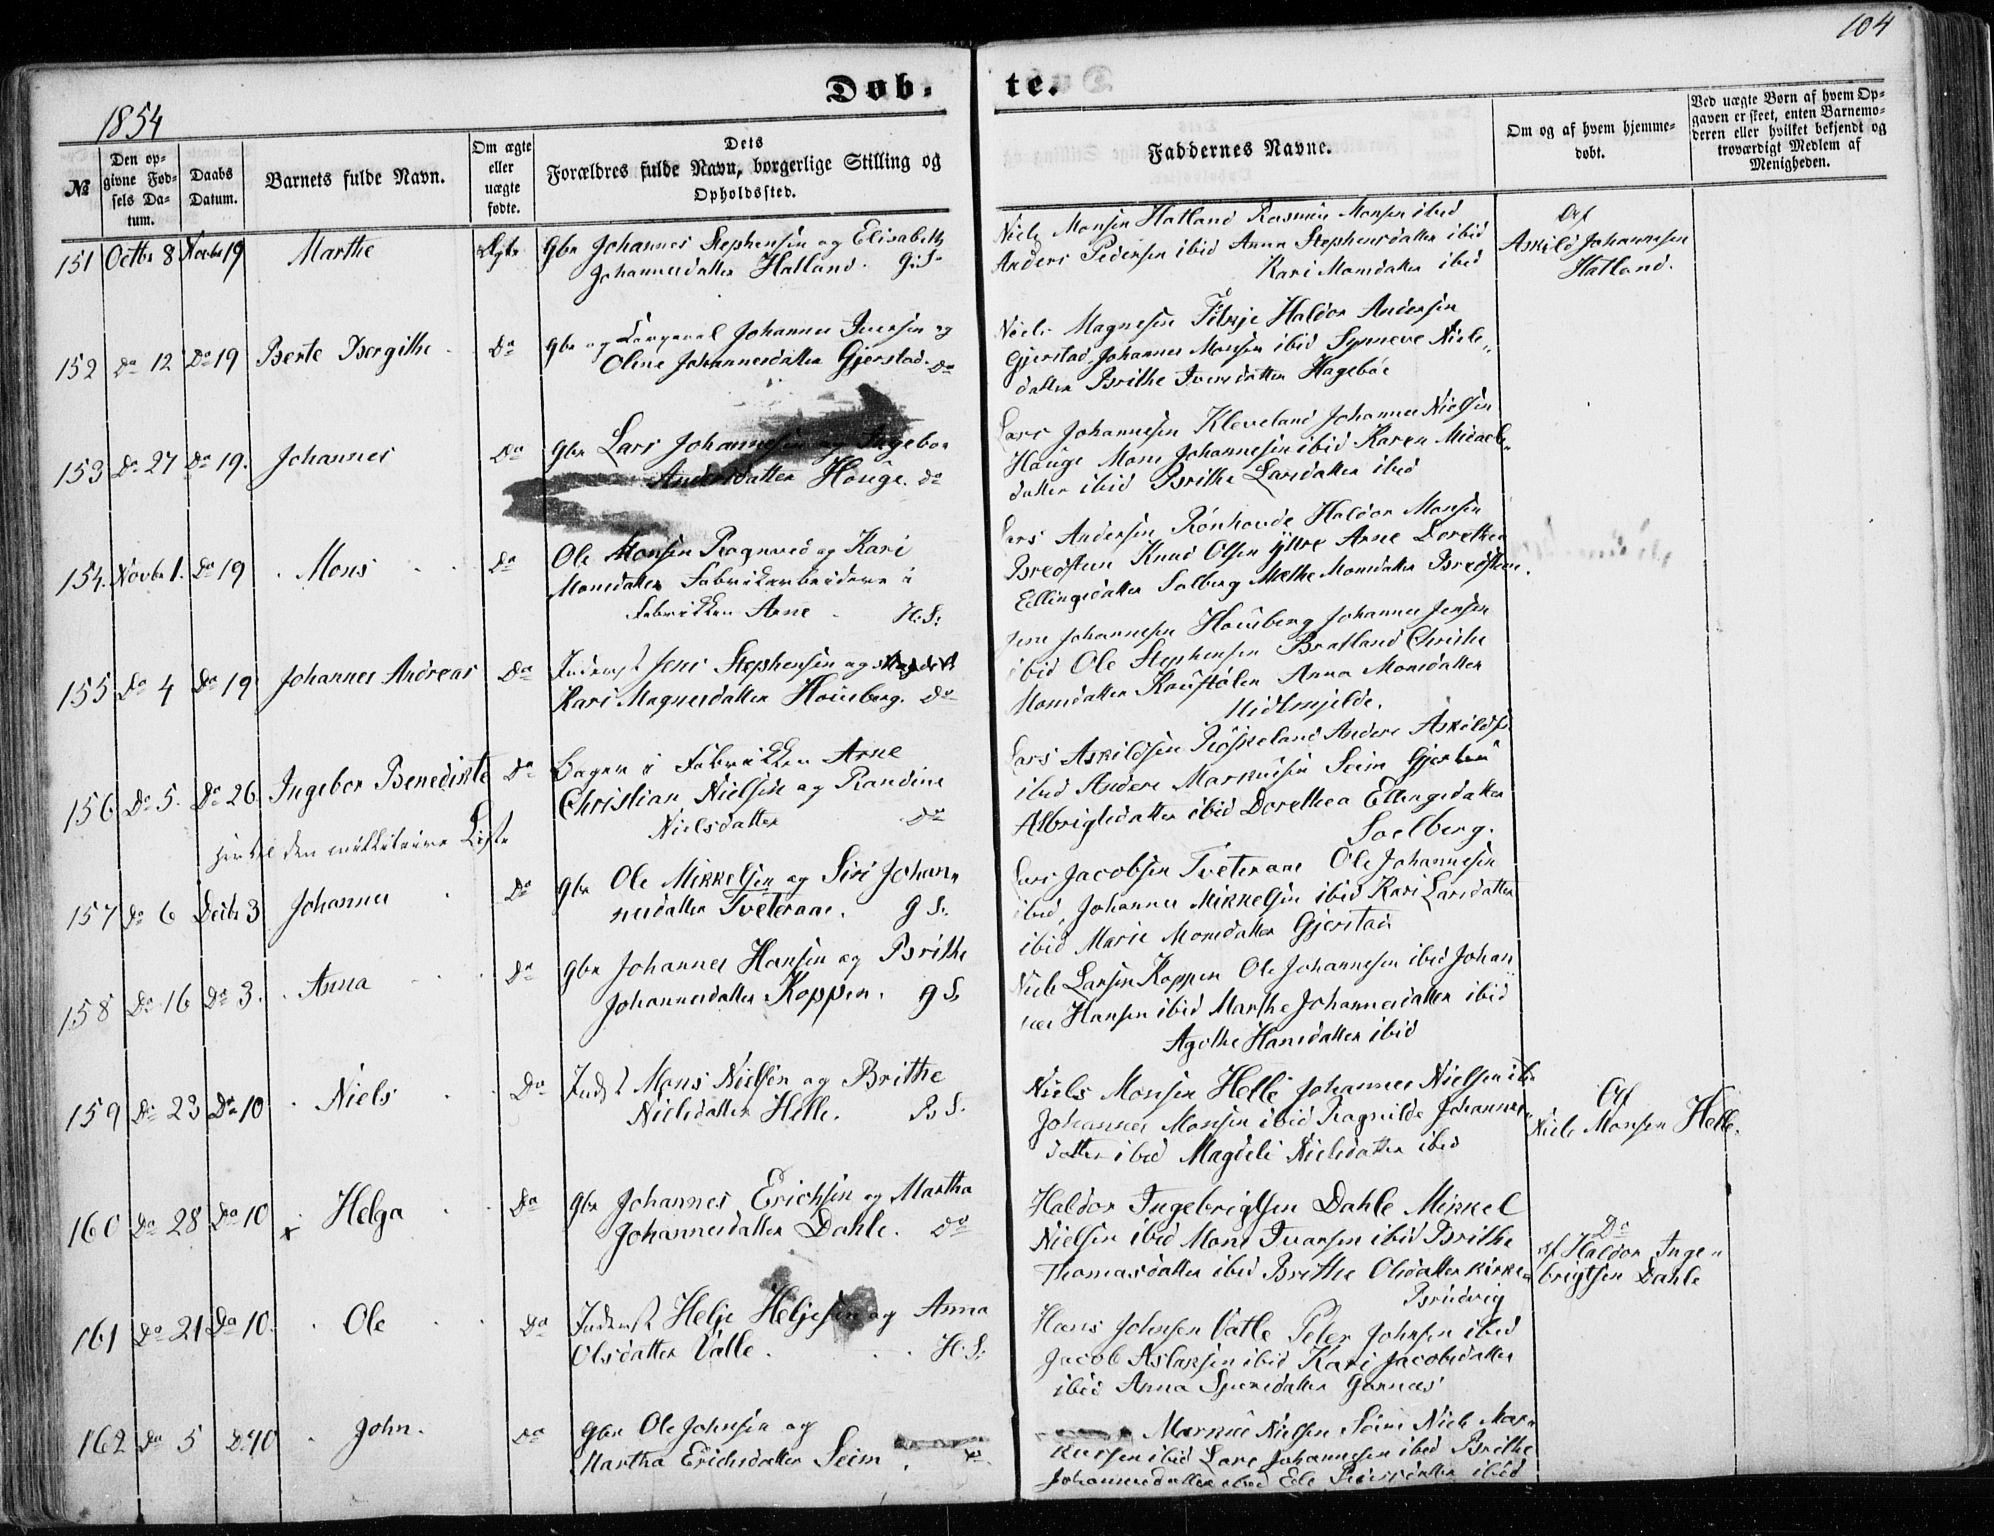 104
Døb- te.
1854
№
Den op-
givne Fød-
sels Da-
tum.
Daabs
Datum.
Barnets fulde Navn.
Om ægte
eller
uægte
fødte.
Dets
Forældres fulde Navn, borgerlige Stilling og
Opholdssted.
Faddernes Navne.
Om og af hvem hjemme-
døbt.
Ved uægte Børn af hvem Op-
gaven er skeet, enten Barnemo-
deren eller hvilket bekjendt og
troværdigt Medlem af
Menigheden.
151 Octbr 8 Novbr 19 Marthe Ægte Gbr Johannes Stephensen og Elisabeth
Johannesdatter Hatland. G.S.
Niels Monsen Hatland Rasmus Monsen ibid
Anders Pedersen ibid Anna Stephensdatter ibid
Kari Monsdatter ibid
Af
Askild Johannesen
Hatland.
152 Do 12 Do 19 Berte Bergithe Do Gbr og Corporal Johannes Iversen og
Oline Johannesdatter Gjerstad. Do
Niels Magnesen Titskje Haldor Andersen
Gjerstad, Johannes Monsen ibid Synneve Niels-
datter Brithe Iversdatter Hagebøe
153 Do 27 Do 19. Johannes Do Gbr Lars Johannesen og Ingebor
Andersdatter Houge. Do
Lars Johannesen Kleveland Johannes Nielsen
Houge Mons Johannesen ibid Karen Micaels-
datter ibid Brithe Larsdatter ibid
154. Novbr 1. Do 19 Mons Do Ole Monsen Ragnved og Kari
Monsdatter Fabrikarbeidere i
Fabrikken Arne H.S.
Lars Andersen Rønhovde Haldor Monsen
Bredsteen Knud Olsen Yttre Arne Dorethea
Ellingsdatter Solberg Methe Monsdatter Bredsteen.
155 Do 4 Do 19 Johannes Andreas Do Inderst Jens Stephensen og
Kari Magnesdatter Housberg. Do
Jens Johannesen Housberg Johannes Jensen
ibid Ole Stephensen Bratland Christie
Monsdatter Anna Monsdatter
Midtmjelde.
156 Do 5. Do 26 Ingebor Benedikte Do Bager i Fabrikken Arne
Christian Nielsen og Randine
Nielsdatter Do
Lars Askildsen Røskeland Anders Askilds.
ibid Anders Markusen Seim Gjertru
Albrigtsdatter ibid Dorethea Ellingsdatter
Soelberg.
den militaire Liste
157 Do 6 Decbr 3 Johannes Do Gbr Ole Mikkelsen og Siri Johan-
nesdatter Tveteraae. G.S.
Lars Jacobsen Tveteraae Ole Johannesen
ibid, Johannes Mikkelsen ibid Kari Larsdatter
ibid Marie Monsdatter Gjerstad
158 Do 16 Do 3. Anna Do Gbr Johannes Hansen og Brithe
Johannesdatter Koppen. G.S.
Niels Larsen Koppen Ole Johannesen ibid Johan
nes Hansen ibid Marthe Johannesdatter ibid
Agethe Hansdatter ibid
159 Do 23 Do 10 Niels Do Inderst Mons Nielsen og Brithe
Nielsdatter Helle. B.S.
Niels Monsen Helle Johannes Nielsen ibid
Johannes Monsen ibid Ragnilde Johannes-
datter ibid Magdeli Nielsdatter ibid
Af
Niels Monsen Helle.
160 Do 28 Do 10 x Helga Do Gbr Johannes Erichsen og Martha
Johannesdatter Dahle. Do
Haldor Ingebrigtsen Dahle Mikkel
Nielsen ibid Mons Ivarsen ibid Brithe
Thomasdatter ibid Brithe Olsdatter Kirke-
Bruvig
Do
af Haldor Inge-
brigtsen Dahle
161 Do 21 Do 10. Ole Do Inderst Helje Heljesen og Anna
Olsdatter Valle. H.S.
Hans Johnsen Vatle Peter Johnsen ibid
Jacob Aslaksen ibid Kari Jacobsdatter
ibid Anna Sjursdatter Garnæs
162 Do 5 Do 10 John. Do Gbr Ole Johnsen og
Martha Erichsdatter Seim
Markus Nielsen Seim Niels Mar-
kussen ibid Lars Johannesen ibid Brithe
Johannesdatter ibid Eli Pedersdatter ibid